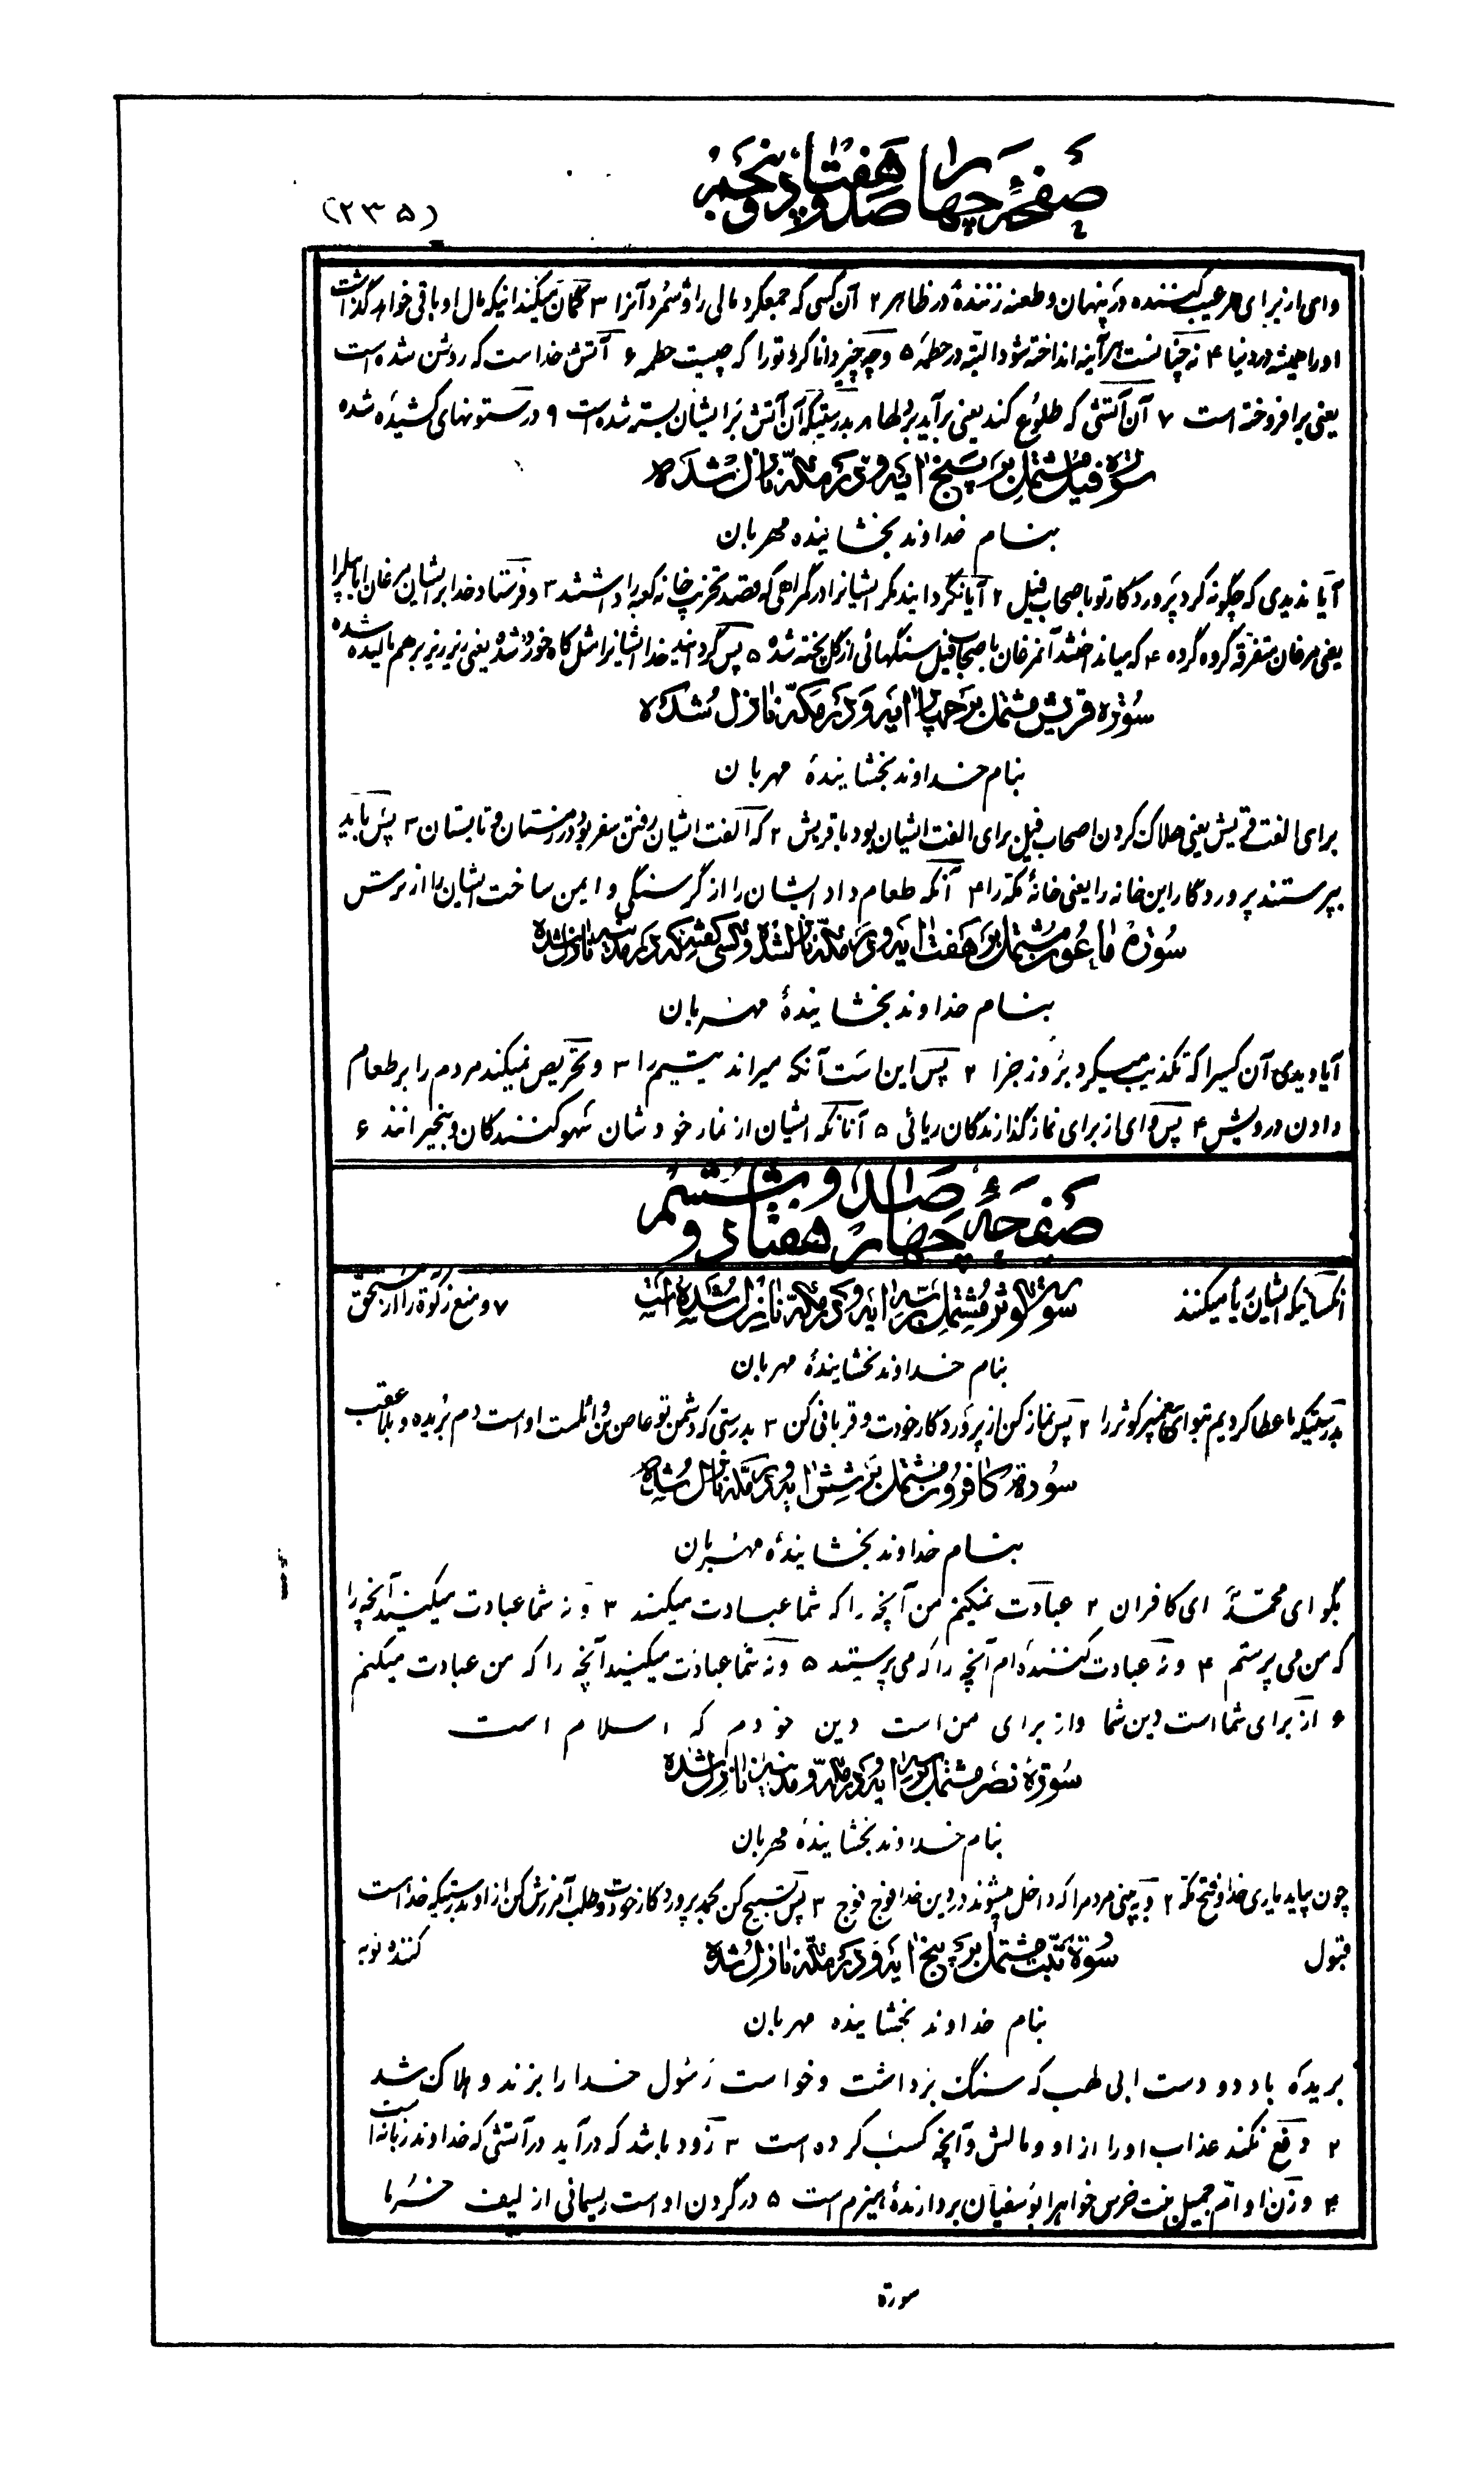 صفحهٔ چهار صد و هفتاد و پنجم
(۲۳۵)
وای از برای هر عیب کننده در پنهان و طعنه زنندهٔ در ظاهر ۲ آن کسی که جمعکرد مالی را و شمرد آنرا ۳ گمان میکند اینکه مال او باقی خواهد گذاشت
او را همیشه در دنیا ۴ نه چنانست هر آینه انداخته شود البته در حطمه ۵ و چه چیز دانا کرد تو را که چیست حطمه ۶ آتش خداست که روشن شده است
یعنی برافروخته است ۷ آن آتشی که طلوع کند یعنی برآید بر دلها ۸ بدرستیکه آن آتش بر ایشان بسته شده است ۹ در ستونهای کشیده شده
سورة فیل مشتمل بر پنج ایه و در مکه نازل شده
بنام خداوند بخشاینده مهربان
آیا ندیدی که چگونه کرد پروردگار تو با صحاب فیل ۲ آیا نگردانید مکر ایشانرا در گمراهی که قصد تخریب خانه کعبه را داشتند ۳ و فرستاد خدا بر ایشان مرغان ابابیلرا
یعنی مرغان متفرقه گروه گروه ۴ که میانداختند آنمرغان با صحاب فیل سنگهائی از گل پخته شده ۵ پس گردانید خدا ایشانرا مثل کاه خورد شده یعنی ریز ریز بر هم مالیده شده
سورة قریش مشتمل بر چهار ایه و در مکه نازل شده
بنام خداوند بخشایندهٔ مهربان
برای الفت قریش یعنی هلاک کردن اصحاب فیل برای الفت ایشان بود با قریش ۲ که الفت ایشان رفتن سفر بود در زمستان و تابستان ۳ پس باید
بپرستند پروردگار این خانه را یعنی خانهٔ مکه را ۴ آنکه طعام داد ایشان را از گرسنگی و ایمن ساخت ایشان را از ترس
سورة ماعون مشتمل بر هفت ایه و در مکه نازلشده و کسی گفته که در مدینه نازلشده
بنام خداوند بخشایندهٔ مهربان
آیا دیدی آن کسیرا که تکذیب میکرد بروز جزا ۲ پس این است آنکه میراند یتیم را ۳ و تحریص نمیکند مردم را بر طعام
دادن درویش ۴ پس وای از برای نماز گذارندگان ریائی ۵ آنانکه ایشان از نماز خودشان سهو کنندگان و بیخبرانند ۶
صفحهٔ چهار صد و هفتاد و ششم
آنکسانیکه ایشان ریا میکنند ۷ و منع زکوة را از مستحق
سورة کوثر مشتمل بر سه ایه و در مکه نازل شده است
بنام خداوند بخشایندهٔ مهربان
بدرستیکه ما عطا کردیم بتو ای پیغمبر کوثر را ۲ پس نماز کن از پروردگار خودت و قربانی کن ۳ بدرستی که دشمن تو عاص بن وائلست او است دم بریده و بلا عقب
سورة کافرون مشتمل بر شش ایه و در مکه نازل شده
بنام خداوند بخشایندهٔ مهربان
بگو ای محمد ای کافران ۲ عبادت نمیکنم من آنچه را که شما عبادت میکنید ۳ و نه شما عبادت میکنید آنچه را
که من می پرستم ۴ و نه عبادت کننده ام آنچه را که می پرستید ۵ و نه شما عبادت میکنید آنچه را که من عبادت میکنم
۶ از برای شما است دین شما و از برای من است دین خودم که اسلام است
سورة نصر مشتمل بر سه ایه و در مکه و مدینه نازل شده
بنام خداوند بخشایندهٔ مهربان
چون بیاید یاری خدا و فتح مکه ۲ و به بینی مردمرا که داخل میشوند در دین خدا فوج فوج ۳ پس تسبیح کن بحمد پروردگار خودت و طلب آمرزش کن از او بدرستیکه خداست
قبول کننده توبه
سورة تبت مشتمل بر پنج ایه و در مکه نازل شده
بنام خداوند بخشاینده مهربان
بریده باد دو دست ابی لهب که سنگ برداشت و خواست رسول خدا را بزند و هلاک شد
۲ دفع نکند عذاب او را از او و مالش و آنچه کسب کرده است ۳ زود باشد که درآید در آتشی که خداوند زبانه است
۴ و زن او ام جمیل بنت خرس خواهر ابوسفیان بردارندهٔ هیزم است ۵ در گردن او است ریسمانی از لیف خرما
سورة